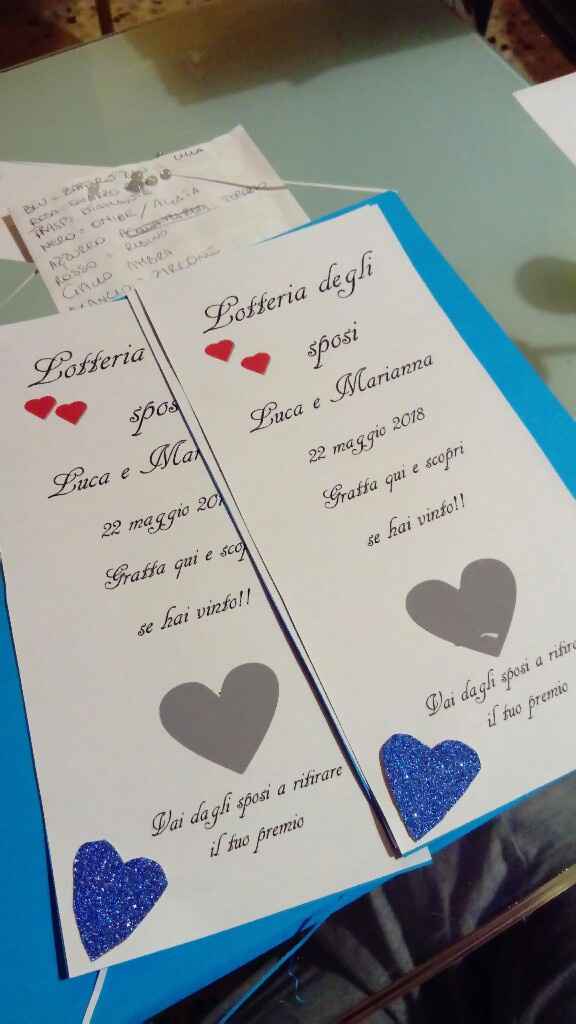 NERO = ONICE /
AZZURRO
ROSSO = RUBINO
GIALLO AMBRA
Lotteria
spos
Luca e Mar
22 maggio 201
Gratta qui e scop
se hai vinto!!
Vai dagli sposi a ritirare
il tuo premio
Lotteria degli
sposi
Luca e Marianna
22 maggio 2018
Gratta qui e scopri
se hai vinto!!
Vai dagli sposi a ritira
il tuo premio